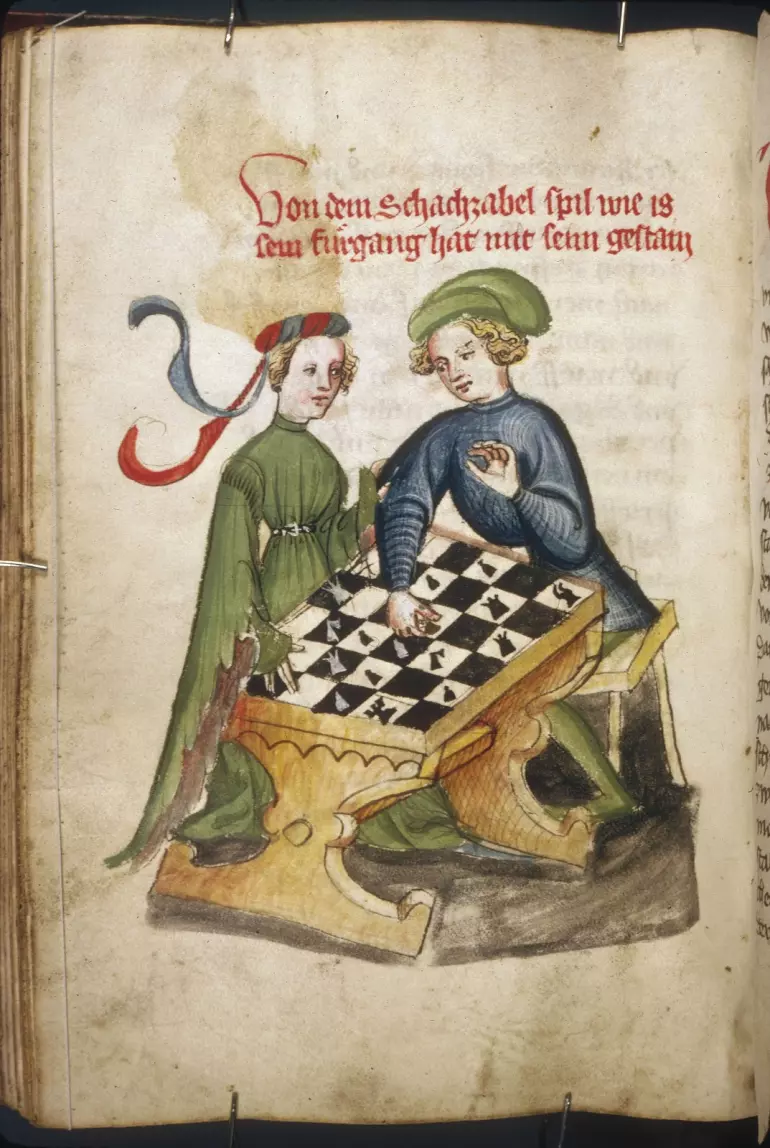 Von dem Schachzabel spil wie is
sein fúrgang hat mit seim gestain